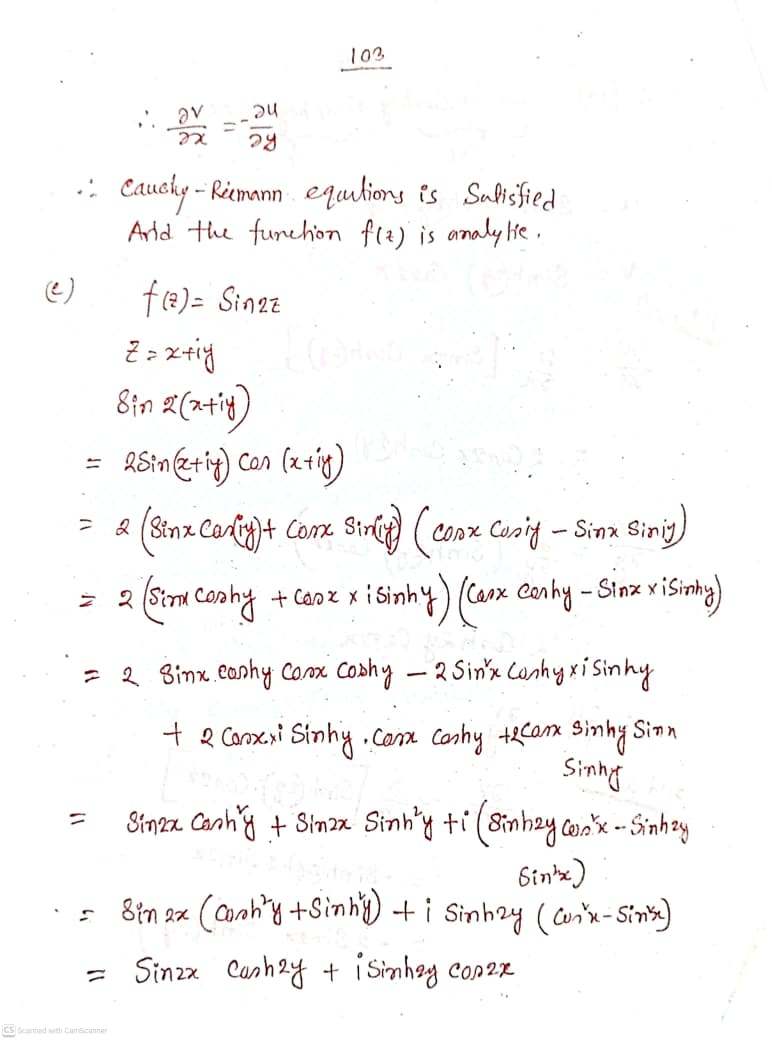 103
∴ ∂v/∂x = -∂u/∂y
∴ Cauchy-Riemann equations is Satisfied
And the function f(z) is analytic.
(e) f(z) = Sin2z
z = x+iy
Sin 2(x+iy)
= 2Sin(x+iy) Cos (x+iy)
= 2 (Sinx Cos(iy) + Cosx Sin(iy)) (Cosx Cosiy - Sinx Siniy)
= 2 (Sinx Coshy + Cosx x iSinhy) (Cosx Coshy - Sinx x iSinhy)
= 2 Sinx.Coshy Cosx Coshy - 2 Sin²x Coshy x iSinhy
+ 2 Cosx x i Sinhy . Cosx Coshy + 2Cosx Sinhy Sinn
Sinhy
= Sin2x Cosh²y + Sin2x Sinh²y + i (Sinh2y Cos²x - Sinh2y
Sin²x)
= Sin2x (Cosh²y + Sinh²y) + i Sinh2y (Cos²x - Sin²x)
= Sin2x Cosh2y + iSinh2y Cos2x
CS Scanned with CamScanner